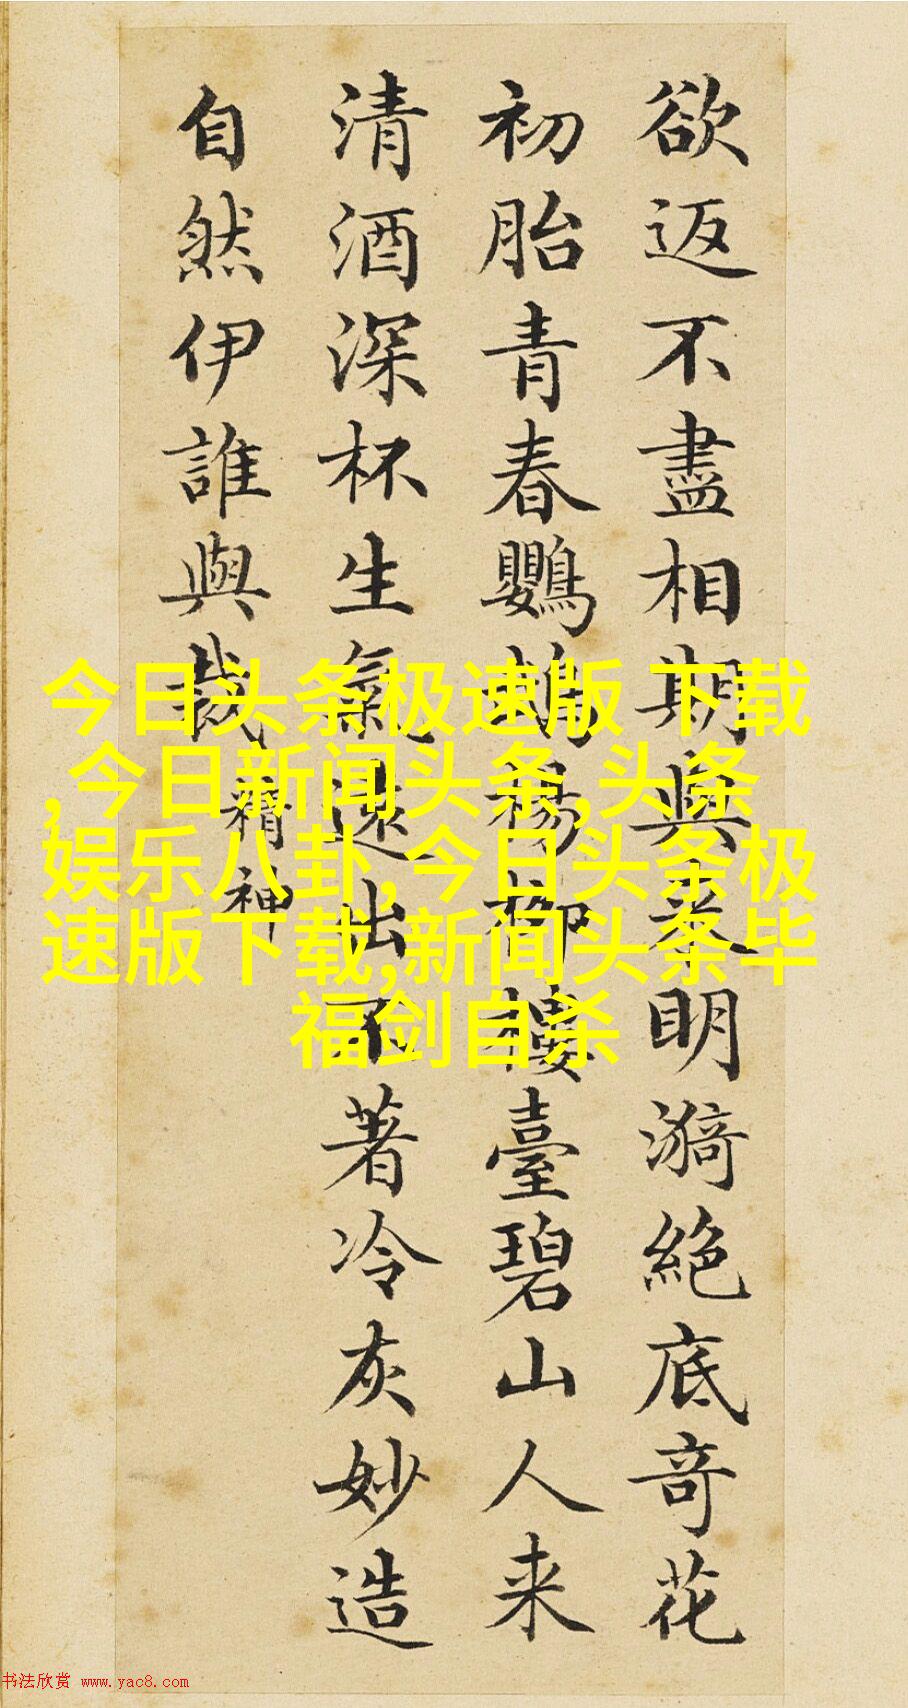 欲返不盡相期與来明漪絕底奇花
初胎青春鸚鵡楊柳樓臺碧山人来
清酒深杯生氣遠出不著冷灰妙造
自然伊誰與裁
精神
今日头条极速版 下载
,今日新闻头条,头条
娱乐八卦,今日头条极
速版下载,新闻头条毕
福剑自杀
书法欣赏 www.yac8.com